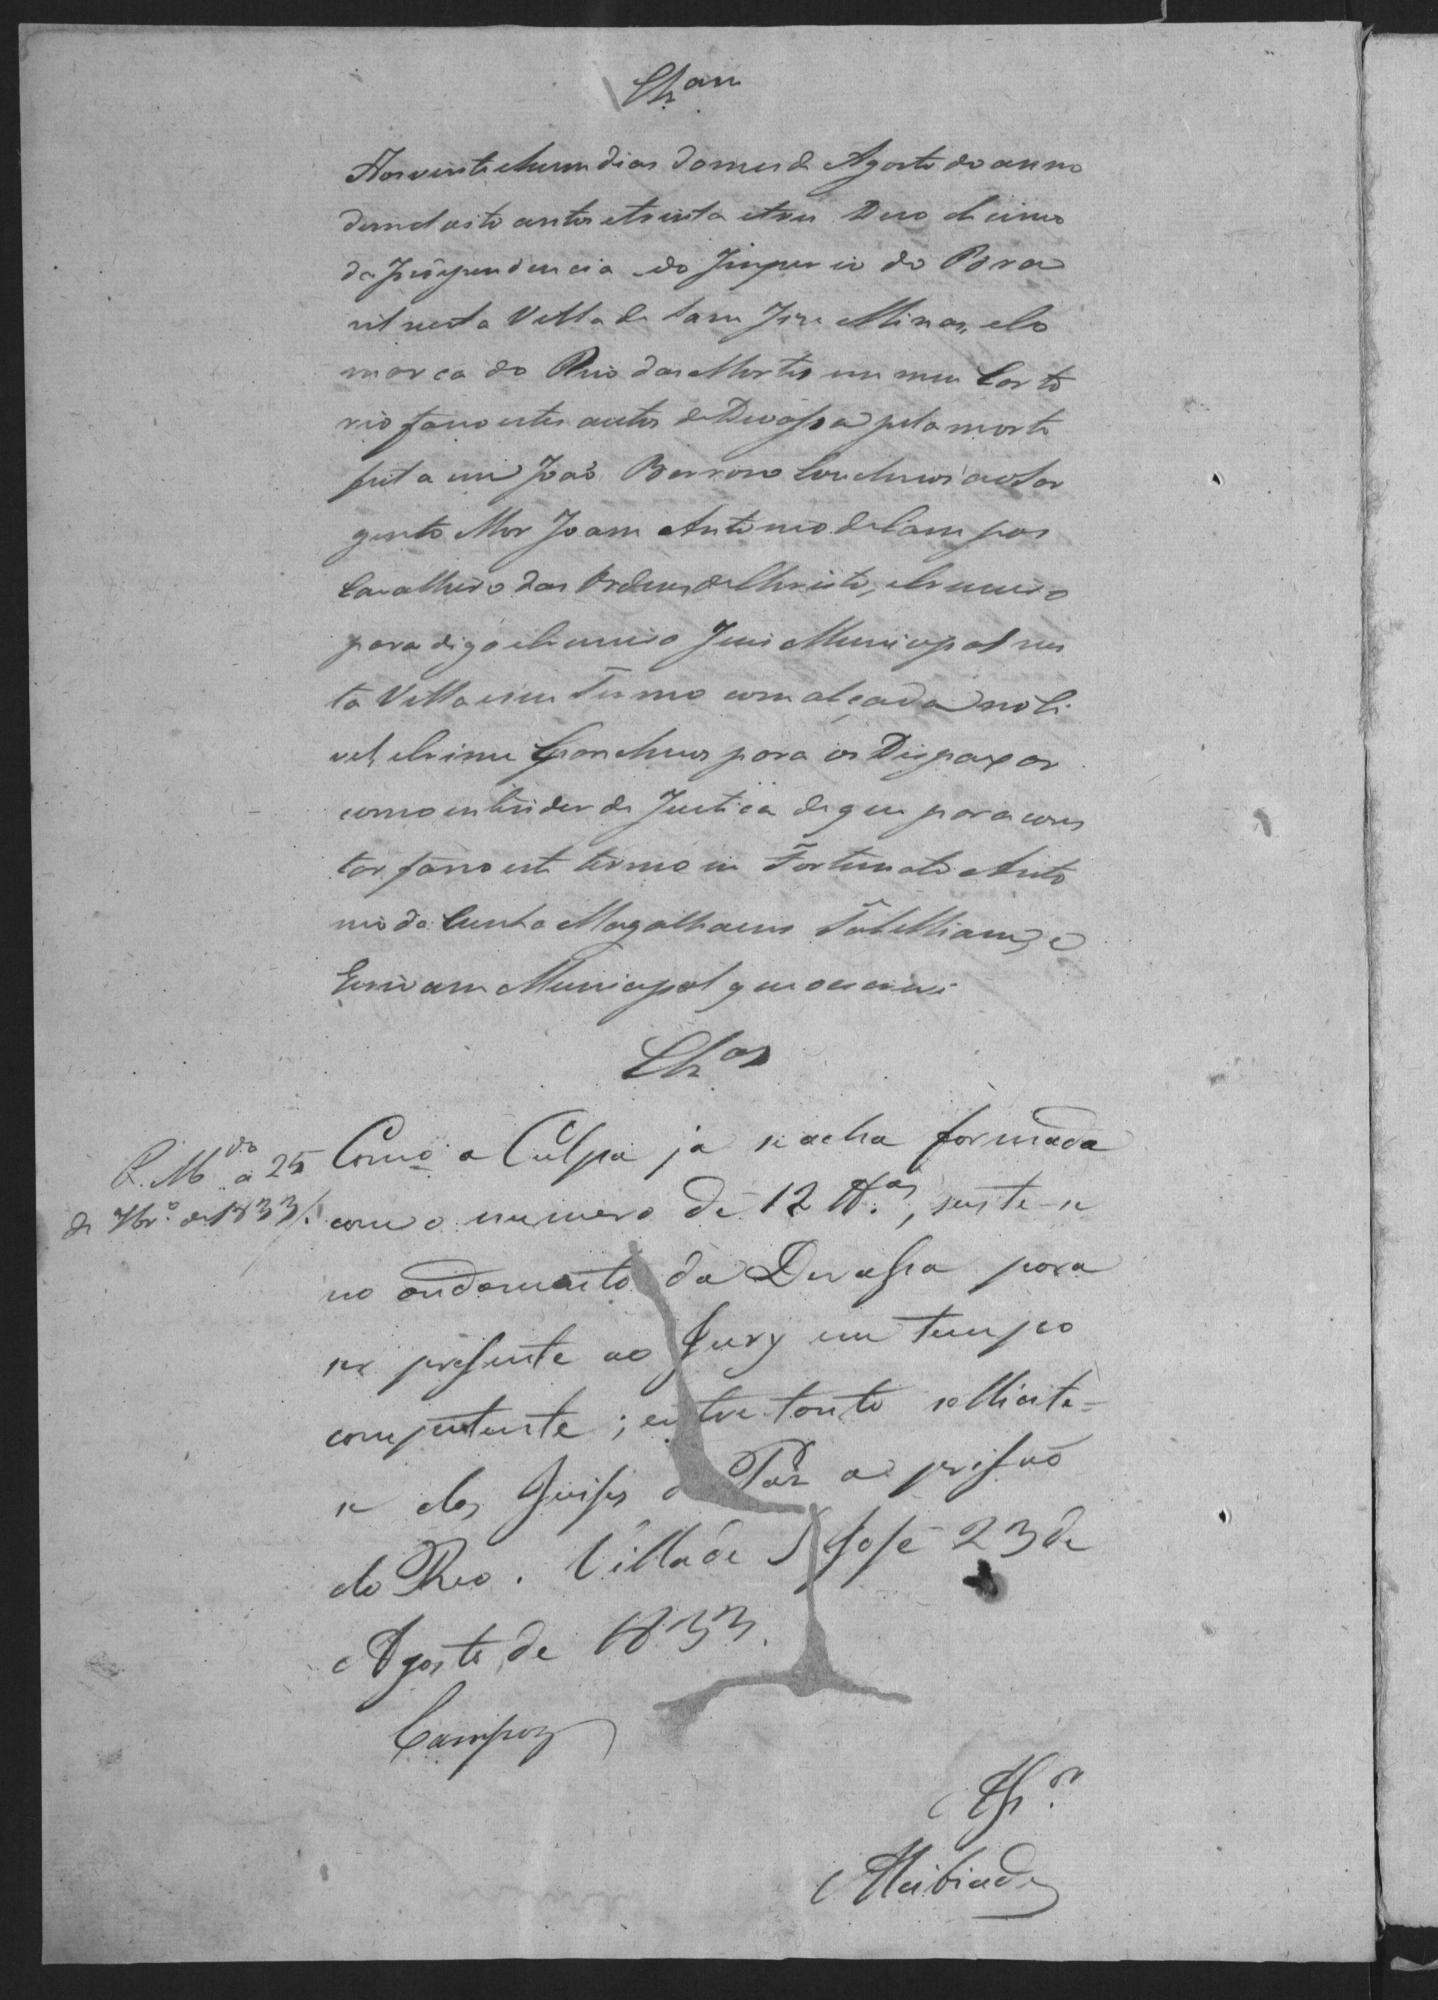 Cl.am
Aos vinte ehum dias do mes de Agosto do anno
demeloito centos etrinta etres Duo decimo
da Independencia edo Imperio do Bra
zil nesta Villa de Sam Joze Minas, e Co
marca do Rio das Mortes em meu Carto
rio faço estes autos de Devassa pela morte
feita em João Barroso Concluzos ao Sar
gento Mor Joam Antonio de Campos
Cavalheiro das Ordens de Christo, e Crimeiro
para digo eCrimeiro Juis Municipal nes
ta Villa eseu Termo com alçada no Ci
vel, eCrime Concluzos para os Despaxar
como entender de Justiça de que para cons
tar faço este termo eu Fortunato Anto
nio da Cunha Magalhaens Tabelliam, e
Escrivam Municipal que o escrevi
Cl.os
Como a Culpa ja se acha formada
P. M.do a 25
de 7br.o de 1833/.
com o numero de 12 tt.as, suste-se
no andamento da Devassa para
ser presente ao Jury em tempo
competente; entre tanto sollicite-
se dos Juises de Paz a prisão
do Reo. Villa de S José 23 de
Agosto de 1833.
Campos